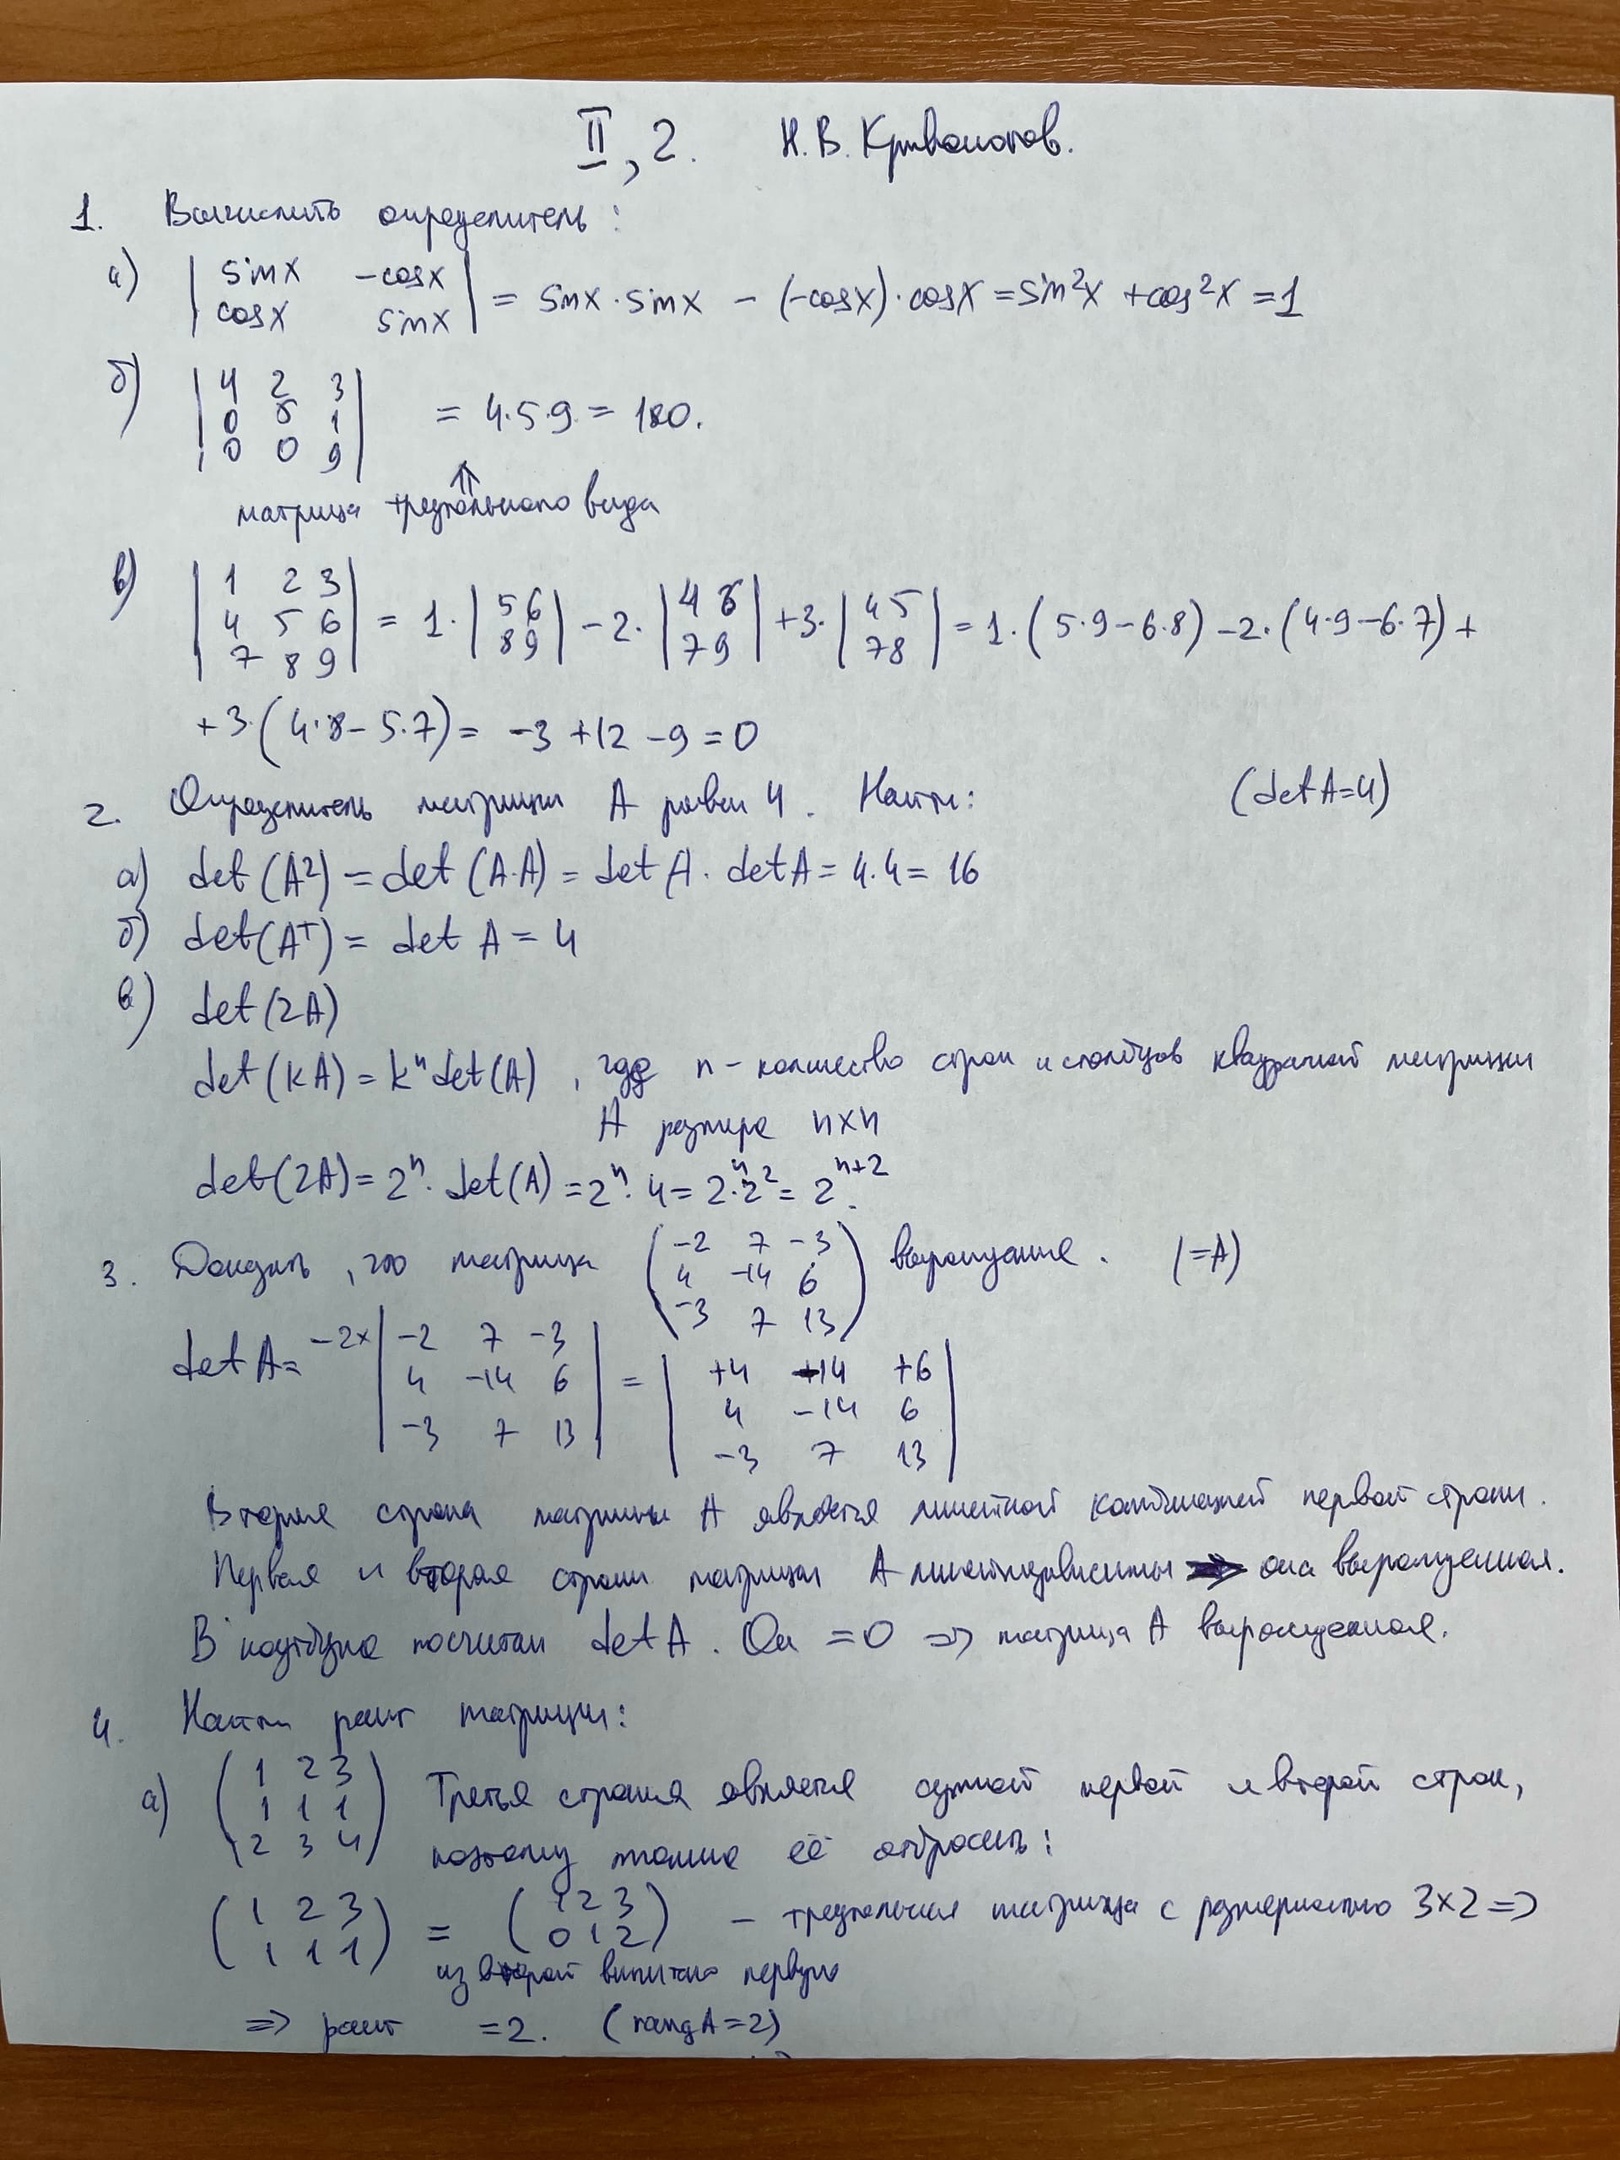 II, 2. Н.В. Кривоногов.
1. Вычислить определитель:
а) | sinx -cosx | = sinx·sinx - (-cosx)·cosx = sin²x + cos²x = 1
| cosx sinx |
б) | 4 2 3 |
| 0 5 1 | = 4·5·9 = 180.
| 0 0 9 |
⇑
матрица треугольного вида
в) | 1 2 3 |
| 4 5 6 | = 1·| 5 6 | - 2·| 4 6 | + 3·| 4 5 | = 1·(5·9-6·8) - 2·(4·9-6·7) +
| 7 8 9 | | 8 9 | | 7 9 | | 7 8 |
+ 3·(4·8 - 5·7) = -3 + 12 - 9 = 0
2. Определитель матрицы A равен 4. Найти: (det A=4)
а) det(A²) = det(A·A) = det A · det A = 4·4 = 16
б) det(Aᵀ) = det A = 4
в) det(2A)
det(kA) = kⁿ det(A), где n - количество строк и столбцов квадратной матрицы
A размера n×n
det(2A) = 2ⁿ · det(A) = 2ⁿ · 4 = 2ⁿ·2² = 2ⁿ⁺².
3. Доказать, что матрица ( -2 7 -3 ) вырожденная. (=A)
( 4 -14 6 )
( -3 7 13 )
det A = -2× | -2 7 -3 | = | +4 +14 +6 |
| 4 -14 6 | | 4 -14 6 |
| -3 7 13 | | -3 7 13 |
Вторая строка матрицы A является линейной комбинацией первой строки.
Первая и вторая строки матрицы A линейнозависимы ⇒ она вырожденная.
В ноутбуке посчитан det A. Он = 0 ⇒ матрица A вырожденная.
4. Найти ранг матрицы:
а) ( 1 2 3 ) Третья строка является суммой первой и второй строк,
( 1 1 1 )
( 2 3 4 ) поэтому можно её отбросить:
( 1 2 3 ) = ( 1 2 3 ) - треугольная матрица с размерностью 3×2 ⇒
( 1 1 1 ) ( 0 1 2 )
из второй вычитаю первую
⇒ ранг = 2. (rangA=2)